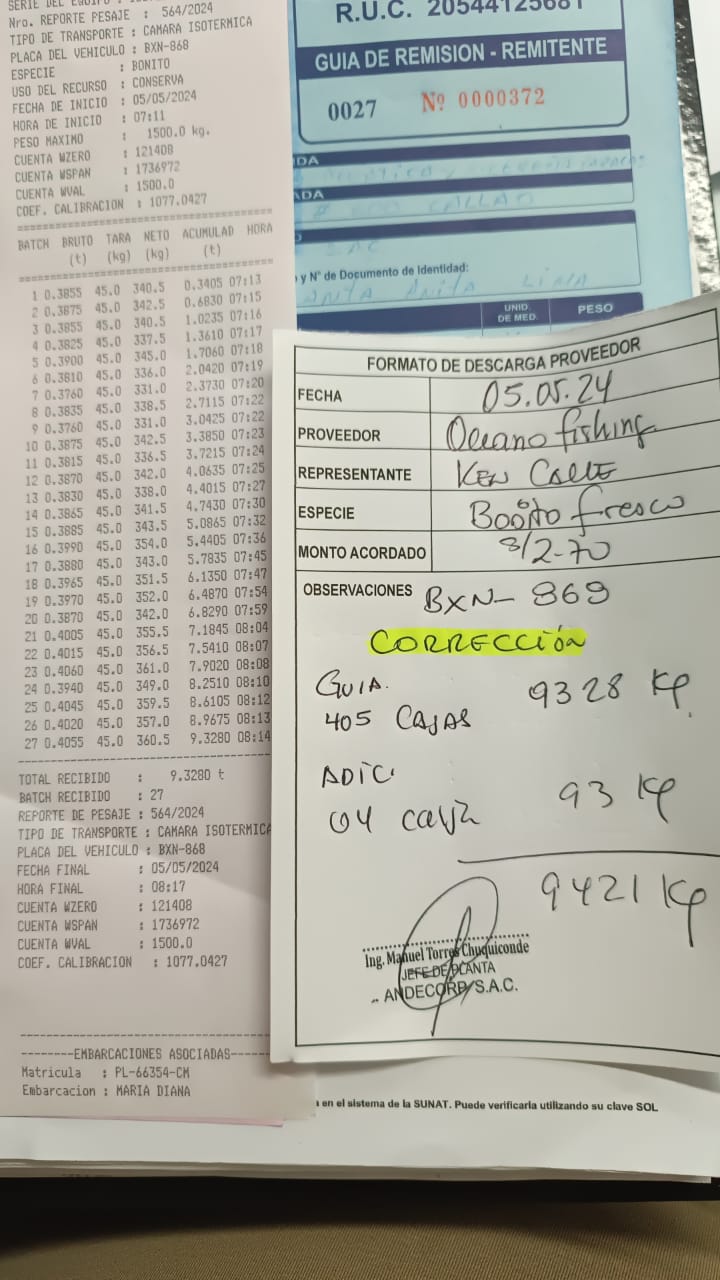 Nro. REPORTE PESAJE : 564/2024
TIPO DE TRANSPORTE : CAMARA ISOTERMICA
PLACA DEL VEHICULO : BXN-868
ESPECIE : BONITO
USO DEL RECURSO : CONSERVA
FECHA DE INICIO : 05/05/2024
HORA DE INICIO : 07:11
PESO MAXIMO : 1500.0 kg.
CUENTA WZERO : 121408
CUENTA WSPAN : 1736972
CUENTA WVAL : 1500.0
COEF. CALIBRACION : 1077.0427
BATCH BRUTO TARA NETO ACUMULAD HORA
(t) (kg) (kg) (t)
1 0.3855 45.0 340.5 0.3405 07:13
2 0.3875 45.0 342.5 0.6830 07:15
3 0.3855 45.0 340.5 1.0235 07:16
4 0.3825 45.0 337.5 1.3610 07:17
5 0.3900 45.0 345.0 1.7060 07:18
6 0.3810 45.0 336.0 2.0420 07:19
7 0.3760 45.0 331.0 2.3730 07:20
8 0.3835 45.0 338.5 2.7115 07:22
9 0.3760 45.0 331.0 3.0425 07:22
10 0.3875 45.0 342.5 3.3850 07:23
11 0.3815 45.0 336.5 3.7215 07:24
12 0.3870 45.0 342.0 4.0635 07:25
13 0.3830 45.0 338.0 4.4015 07:27
14 0.3865 45.0 341.5 4.7430 07:30
15 0.3885 45.0 343.5 5.0865 07:32
16 0.3990 45.0 354.0 5.4405 07:36
17 0.3880 45.0 343.0 5.7835 07:45
18 0.3965 45.0 351.5 6.1350 07:47
19 0.3970 45.0 352.0 6.4870 07:54
20 0.3870 45.0 342.0 6.8290 07:59
21 0.4005 45.0 355.5 7.1845 08:04
22 0.4015 45.0 356.5 7.5410 08:07
23 0.4060 45.0 361.0 7.9020 08:08
24 0.3940 45.0 349.0 8.2510 08:10
25 0.4045 45.0 359.5 8.6105 08:12
26 0.4020 45.0 357.0 8.9675 08:13
27 0.4055 45.0 360.5 9.3280 08:14
TOTAL RECIBIDO : 9.3280 t
BATCH RECIBIDO : 27
REPORTE DE PESAJE : 564/2024
TIPO DE TRANSPORTE : CAMARA ISOTERMICA
PLACA DEL VEHICULO : BXN-868
FECHA FINAL : 05/05/2024
HORA FINAL : 08:17
CUENTA WZERO : 121408
CUENTA WSPAN : 1736972
CUENTA WVAL : 1500.0
COEF. CALIBRACION : 1077.0427
--------EMBARCACIONES ASOCIADAS-----
Matricula : PL-66354-CM
Embarcacion : MARIA DIANA
R.U.C. 20544125681
GUIA DE REMISION - REMITENTE
0027 Nº 0000372
CALLAO
SAC
y N° de Documento de Identidad:
ANITA LIMA
UNID. DE MED. PESO
FORMATO DE DESCARGA PROVEEDOR
FECHA 05.05.24
PROVEEDOR Oceano fishing
REPRESENTANTE Ken Calle
ESPECIE Bonito fresco
MONTO ACORDADO S/2.70
OBSERVACIONES BXN-869
CORRECCIÓN
GUIA. 9328 Kg.
405 CAJAS
ADIC.
04 caja 93 Kg
9421 Kg
Ing. Manuel Torres Chuquiconde
JEFE DE PLANTA
ANDECORP S.A.C.
en el sistema de la SUNAT. Puede verificarla utilizando su clave SOL